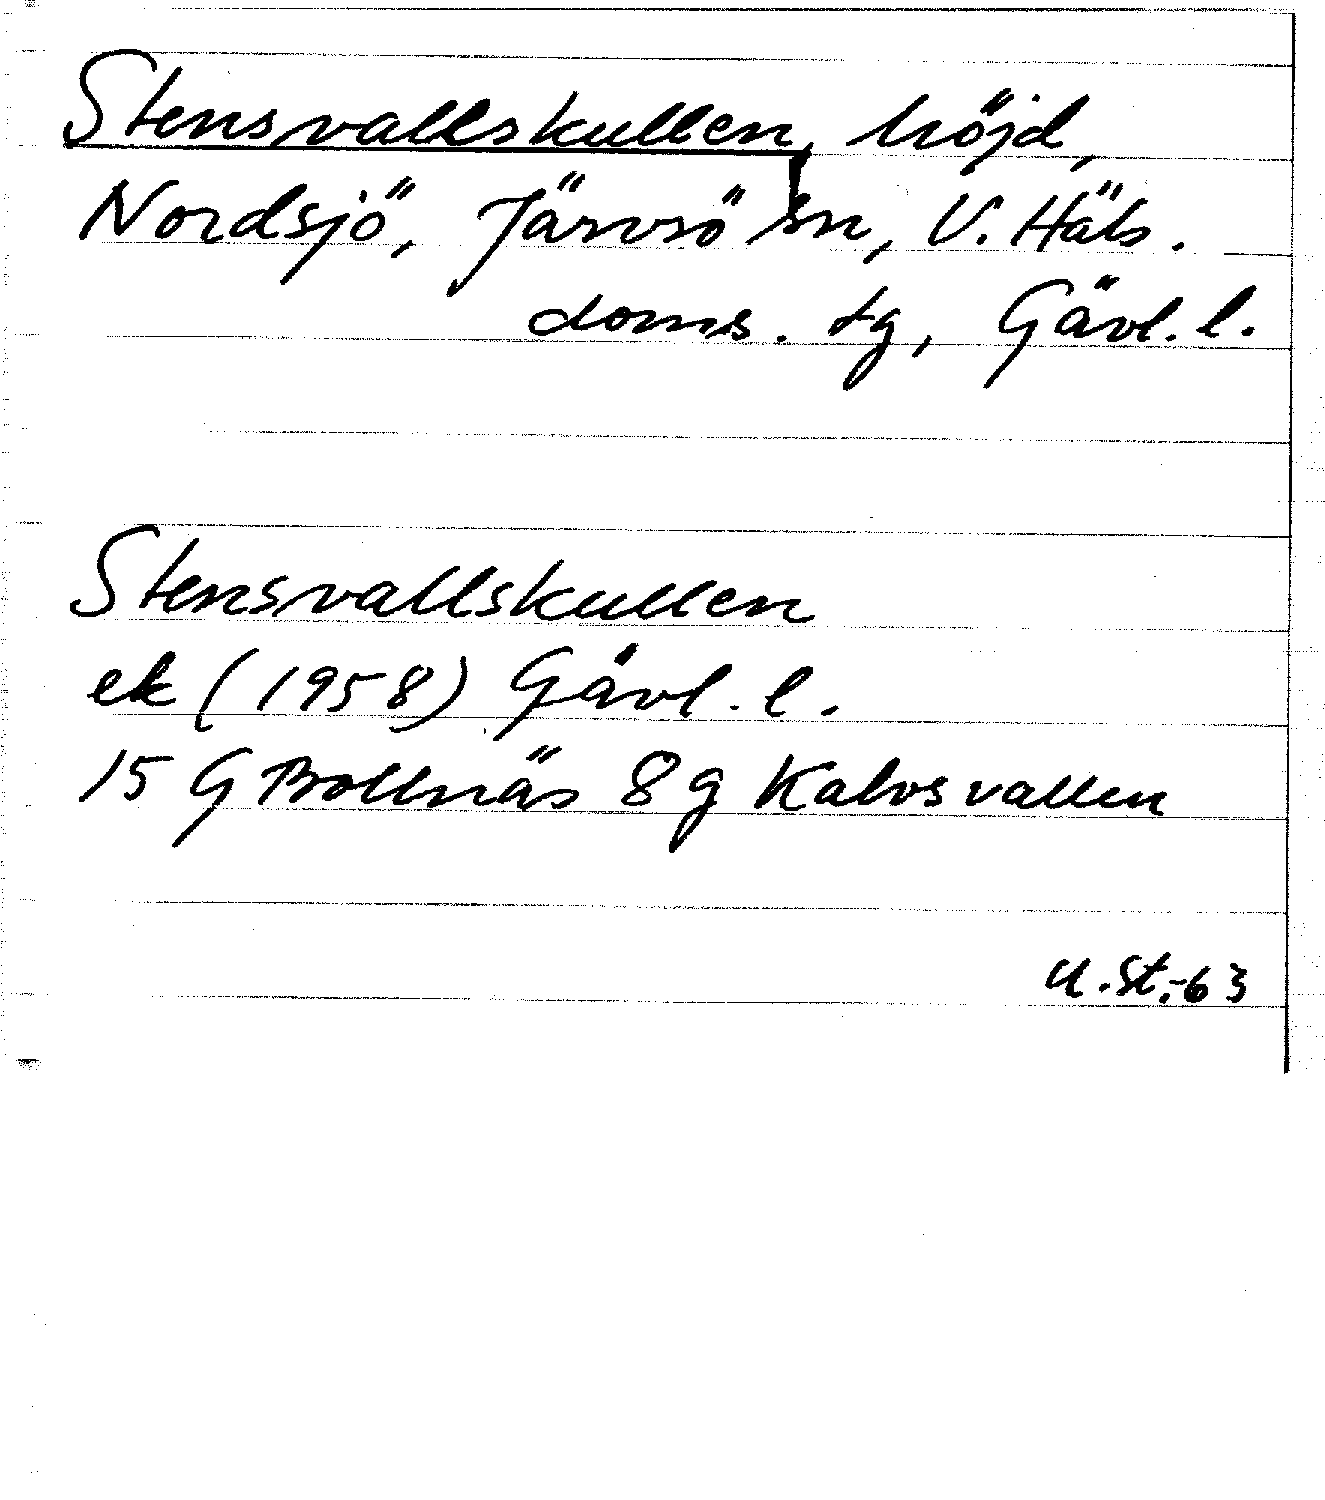 Stensvallskullen, höjd,
Nordsjö, Järvsö sn, V. Häls.
doms. tg, Gävl. l.
Stensvallskullen
ek (1958) Gävl. l.
15 G Bollnäs 8 g Kalvsvallen
U.St.-63